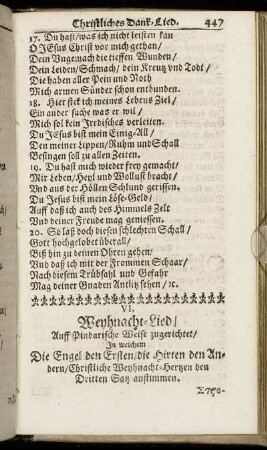 Christliches Danck-Lied. 447
17. Du hast/ was ich nicht leisten kan
O JEsus Christ vor mich gethan/
Dein Ungemach die tieffen Wunden/
Dein Leiden/ Schmach/ dein Kreutz vnd Todt/
Die haben aller Pein und Noth
Mich armen Sünder schon entbunden.
18. Hier steck ich meines Lebens Ziel/
Ein ander suche was er wil/
Mich sol kein Irrdisches verleiten.
Du JEsus bist mein Einig-All/
Den meiner Lippen/ Ruhm und Schall
Besingen soll zu allen Zeiten.
19. Du hast mich wieder frey gemacht/
Mir Leben/ Heyl und Wollust bracht/
Und aus der Höllen Schlund gerissen.
Du JEsus bist mein Löse-Geld/
Auff daß ich auch des Himmels Zelt
Und deiner Freude mag geniessen.
20. So laß doch diesen schlechten Schall/
Gott hochgelobet überall/
Biß hin zu deinen Ohren gehen/
Und daß ich mit der Frommen Schaar/
Nach diesem Trübsahl und Gefahr
Mag deiner Gnaden Antlitz sehen/ ꝛc.
VI.
Weyhnacht-Lied/
Auff Pindarische Weise zugerichtet/
In welchem
Die Engel den Ersten/ die Hirten den An-
dern/ Christliche Weyhnacht-Hertzen den
Dritten Satz anstimmen.